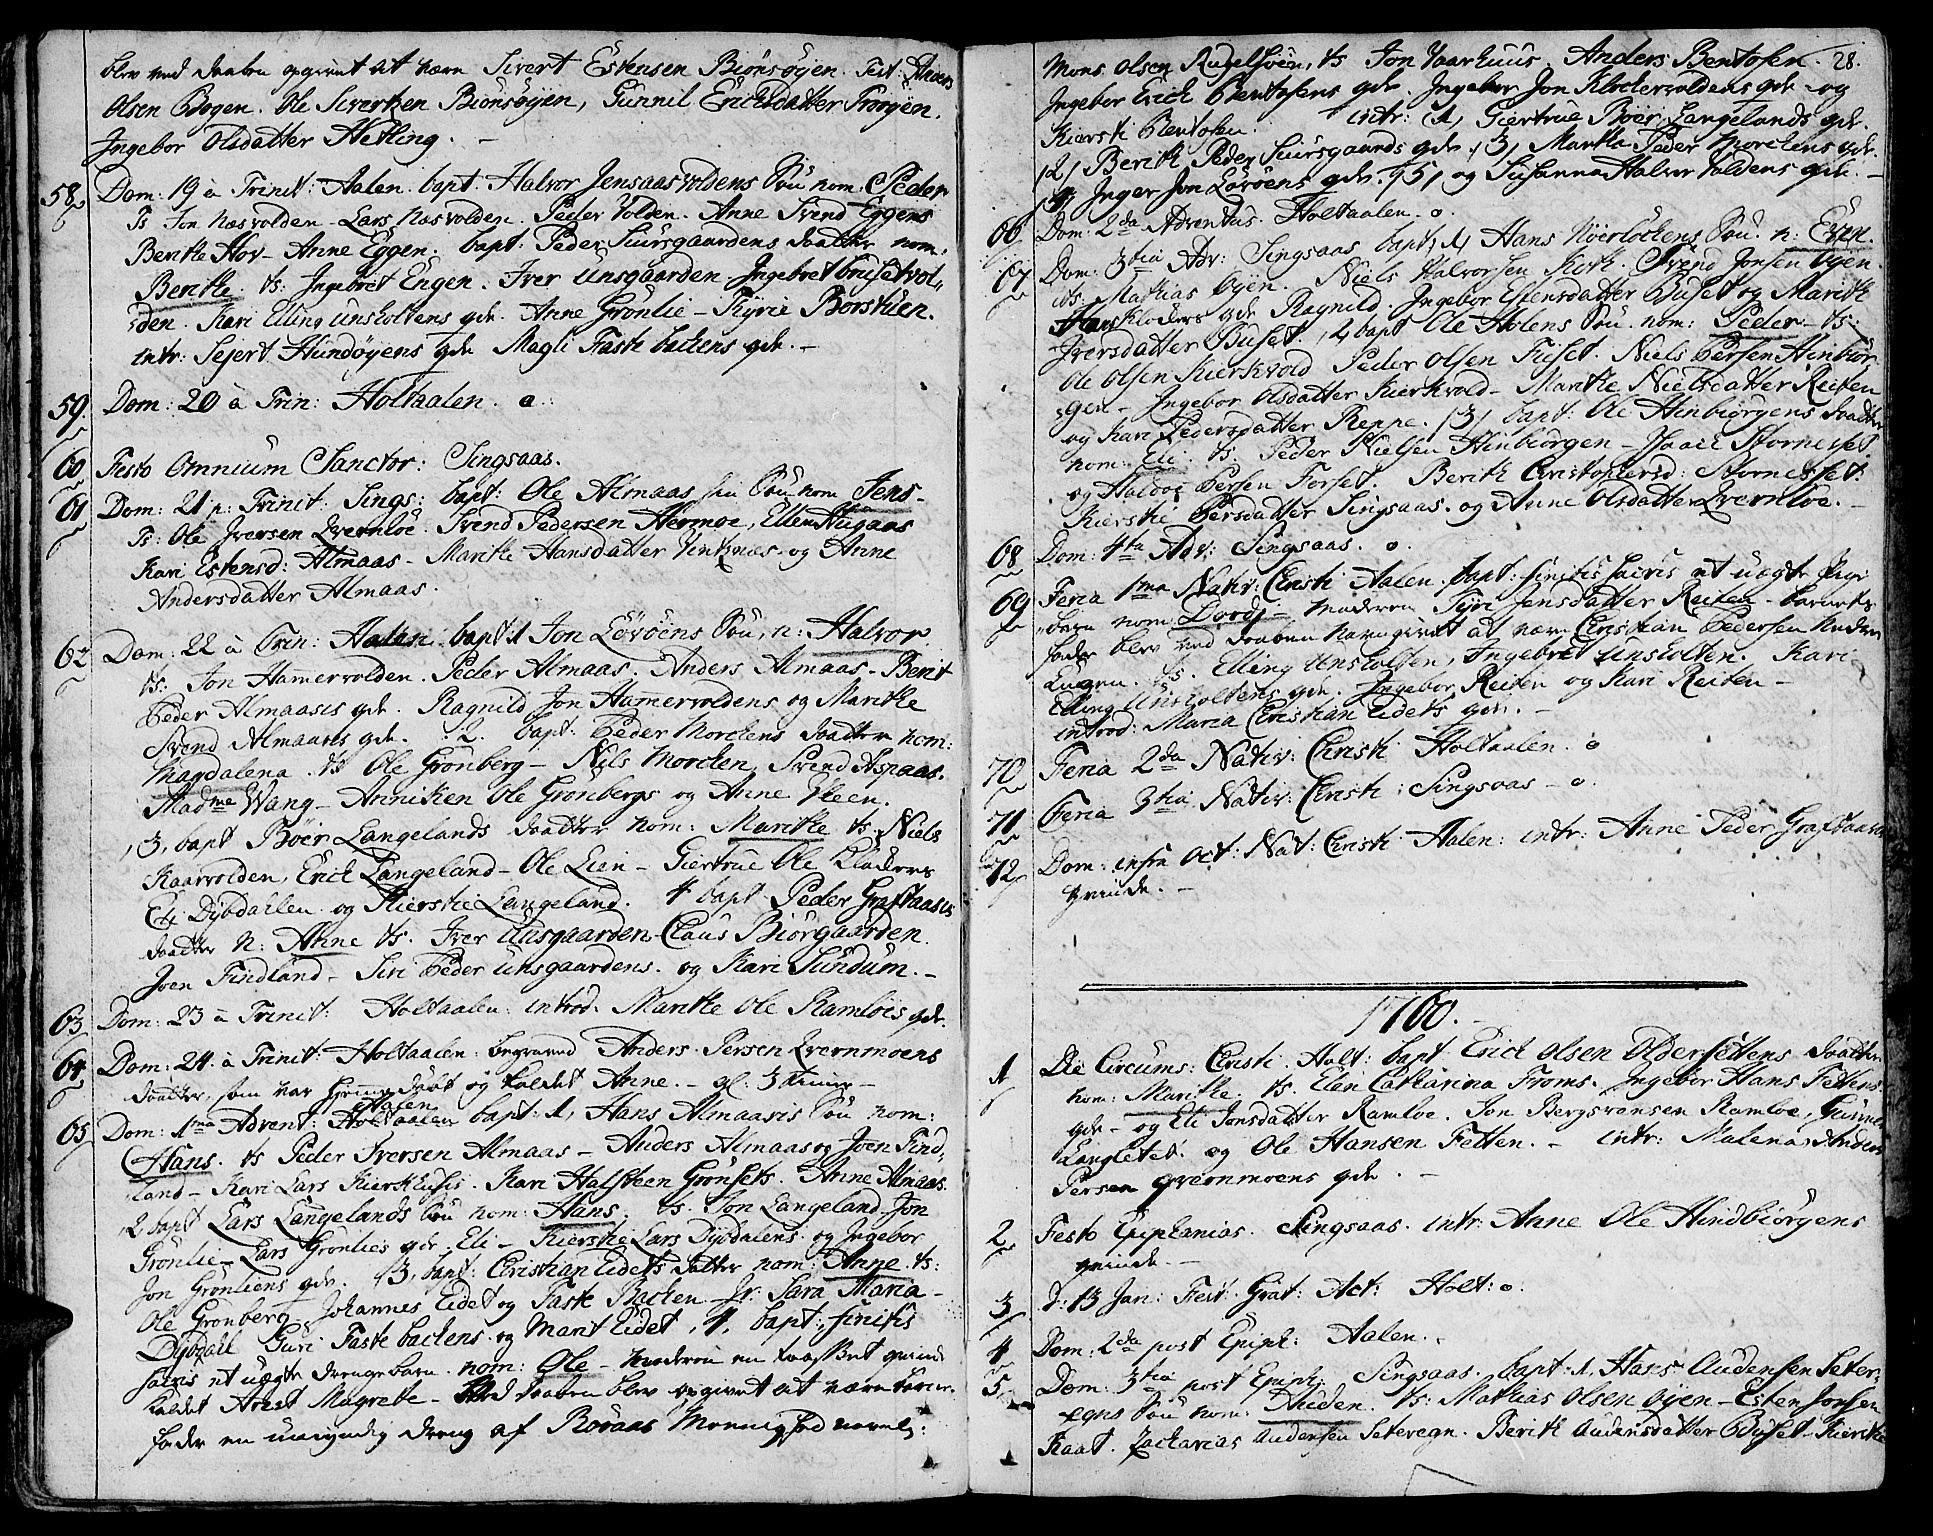 blev ved daaben opgivet at være Sivert Estensen Biönsöyen. Test. Anders
Olsen Bogen. Ole Sivertsen Bionsöyen, Gunnil Ericksdatter Troyen.
Ingebor Olsdatter Hetling. -
58 Dom: 19 à Trinit: Aalen. bapt. Halvor Jensaasvoldens Sön nom. Peder
Ts Jon Næsvolden - Lars Næsvolden. Peder Volden. Anne Svend Eggens
Berithe Hov - Anne Eggen. bapt: Peder Suursgaardens daatter nom.
Berithe. ts: Ingebret Engen. Iver Unsgaarden - Ingebret brusetvol-
den. Kari Elling Unsholtens qde. Anne Grönlie - Kyrie Borstuen.
intr: Sejert Hundöyens qde Magli Fastebackens qde. -
59 Dom: 20 à Trin: Holtaalen. o.
60 Festo Omnium Sanctor: Singsaas.
61 Dom: 21 p: Trinit. Sings: bapt: Ole Almaas sin Sön nom Jens -
Ts: Ole Iversen Qvernloe. Svend Pedersen Hermoe, Ellen Haugaas
Kari Estensd: Almaas - Marithe Hansdatter Vintenæs - og Anne
Andersdatter Almaas.
62 Dom: 22 à Trin: Aalen. bapt 1 Jon Lövöens Sön, n: Halvor
ts: Jon Hammervolden. Peder Almaas. Anders Almaas - Berit
Peder Almaases qde. Ragnild Jon Hammervoldens og Marithe
Svend Almaases qde. 2. bapt: Peder Mordens daatter nom:
Magdalena. ts Ole Grönberg - Niels Morden, Svend Aspaas.
Madme Wang - Anniken Ole Gronbergs og Anne Kleen.
, 3, bapt Böer Langelands daatter nom: Marithe ts. Niels
Kaarvolden, Erick Langeland - Ole Lien - Giertrue Ole Kladers
Eli Dybdahlen og Kierstie Langeland. 4 bapt Peder Grafbaases
daatter n: Anne ts. Iver Unsgaarden - Claus Biörgaarden.
Joen Findland - Siri Peder Unsgaardens. og Kari Sundum. -
63 Dom: 23 à Trinit: Holtaalen: introd. Marithe Ole Ramlöes qde.
64 Dom: 24. à Trinit: Holtaalen: begraved Anders Persen Qvernmoens
daatter, som var hiemme döbt og kaldet Anne. - gl: 3 Timer -
Aalen
65 Dom: 1ma Advent: Holtaalen bapt: 1, Hans Almaases Sön nom:
Hans. ts Peder Iversen Almaas - Anders Almaas og Joen Find-
land - Kari Lars Kierkhuses. Kari Halsteen Grönsets. Anne Almaas.
, 2 bapt Lars Langelands Sön nom: Hans. ts. Jon Langeland - Jon
Grönlie - Lars Grönlies qde Eli - Kierstie Lars Dybdalens og Ingebor
Jon Grönliens qde. , 3, bapt: Christian Eidets datter nom: Anne ts:
Ole Gronberg, Johannes Eidet og Faste Backen - Jr. Sara Maria -
Dybdal Guri Faste backens - og Marit Eidet, 4, bapt: finitis
sacris et uægte drengebarn nom: Ole - moderen en qvinde
kaldet Anne Magrethe - Ved daaben blev opgivet at være barne
fader en umyndig dreng af Röraas
28.
Mons Olsen Rugelsöen, ts Jon Vaarhuus. Anders Bentosen.
Ingebor Erick Bentosens qde. Ingebor Jon Kladervoldens qde og
Kiersti Bentosen. intr: 1, Giertrue Böer Langelands qde.
/2/ Berith Peder Suursgaards qde /3/ Marithe Peder Mordens qde.
/4/ Inger Jon Lövöens qde. /5/ og Susanna Halvor Voldens qde. -
66 Dom: 2da Adventus. Holtaalen. o.
67 Dom: 3tia Adv: Singsaas bapt, 1, Hans Nöerlöckens Sön. n: Even.
ts: Mathias Oyen. Niels Halvorsen Kirk. Svend Jonsen Oyen.
Hans Kladers qde Ragnild. Ingebor Estensdatter Buset og Marithe
Iversdatter Buset. , 2 bapt Ole Holens Sön. nom: Peder - ts:
Ole Olsen Kierkvold Peder Olsen Fuset. Niels Persen Hinbiör
gen - Ingebor Olsdatter Kierkvold - Marithe Nielsdatter Reiten
og Kari Pedersdatter Reppe. /3/ bapt: Ole Hinbiörgens daatter
nom: Eli. ts. Peder Nielsen Hinbiorgen - Isaac Stornesset
og Halvor Persen Forset. Berith Christophersd: Stornesset.
Kierstie Persdatter Singsaas. og Anne Olsdatter Qvernloe. -
68 Dom: 4ta Adv: Singsaas. o.
69 Feria 1ma Nativ: Christi Aalen. bapt: finitis sacris et uægte Pige
barn nom: Dordi - moderen Tyri Jensdatter Reiten - barnets
fader blev ved daaben navngivet at være Christian Pedersen
ts. Elling Unsholten, Ingebret Unsholten. Kari
Elling Unsholtens qde. Ingebor Reiten og Kari Reiten -
introd: Maria Christian Eidets qde. -
70 Feria 2da Nativ: Christi Holtaalen. o
71 Feria 3tia Nativ: Christi: Singsaas - o.
72 Dom: infra Oct: Nat: Christi Aalen: intr: Anne Peder Grafbaases
qvinde. -
1760.
1 Die Circums: Christi. Holt: bapt Erick Olsen Oldersettens daatter
nom: Marithe. ts. Elen Catharina Froms. Ingebor Hans Fettens
qde - og Eli Jonsdatter Ramloe. Jon Bergsvansen Ramloe, Gunner
Langletet. og Ole Hansen Fetten. - intr: Malena Anders
Persen qvernmoens qde. -
2 Festo Epiphanias. Singsaas. intr: Anne Ole Hindbiörgens
qvinde. -
3 d: 13 Jan: Fest: Grat: Act: Holt: o.
4 Dom: 2da post Epiph: Aalen. .
5 Dom: 3tia post Epiph: Singsaas. bapt: 1, Hans Audensen Seter-
egns Sön nom: Auden. ts: Mathias Olsen Oyen - Esten Jonsen
Kaat. Zacharias Audensen Seteregn. Berith Audensdatter Buset - Kierstie